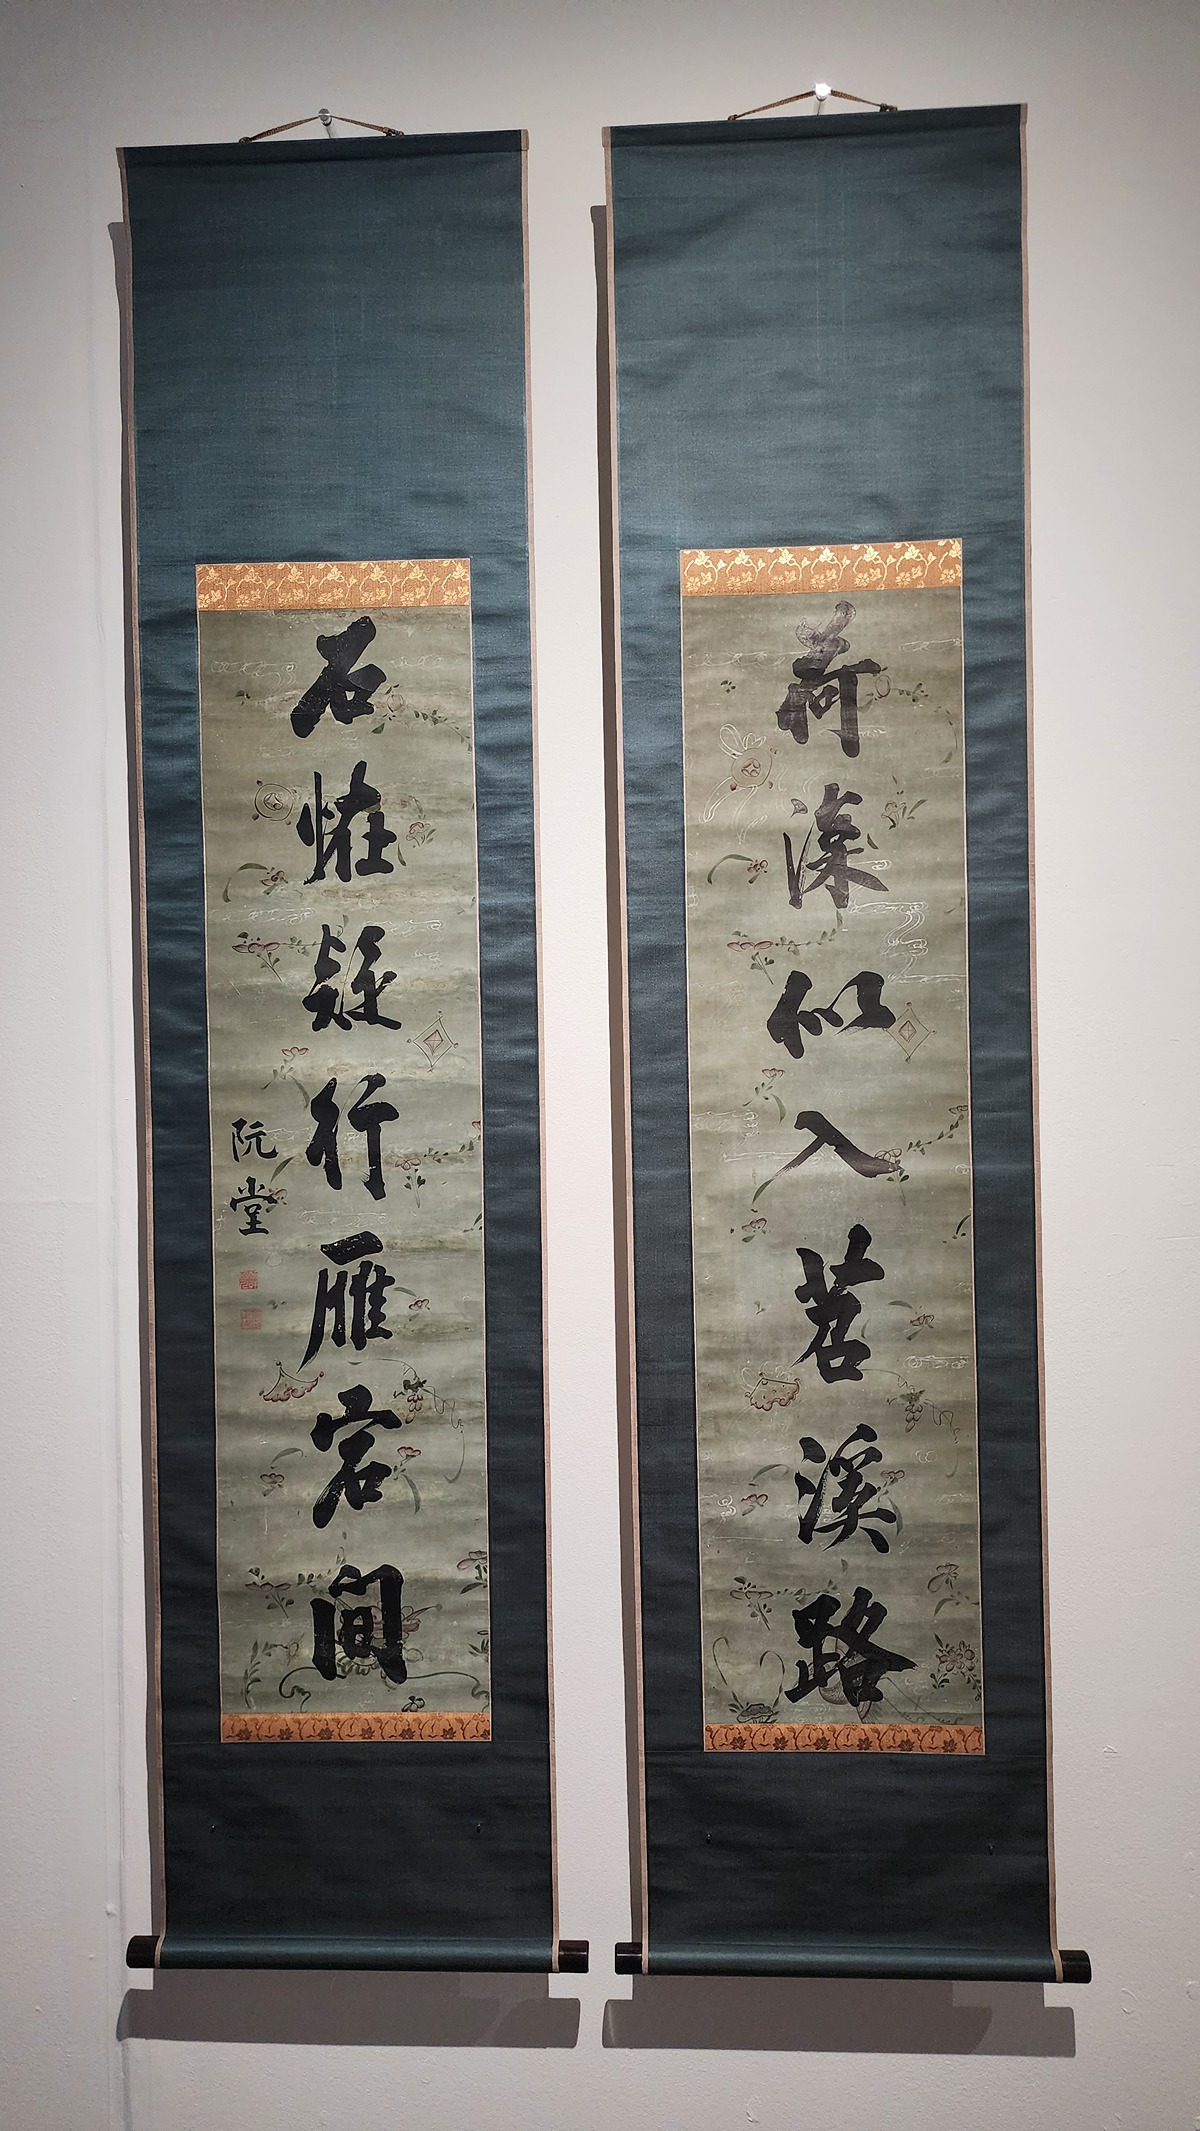 荷深似入苕溪路
石怪疑行雁宕間
阮堂